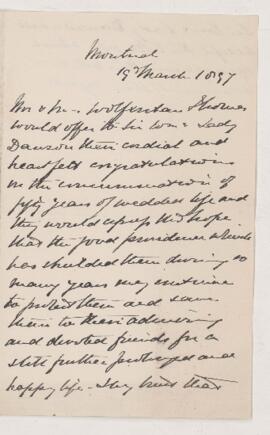 Montreal
19th March 1897
Mr & Mrs Wolferstan Thomas
would offer to Sir Wm & Lady
Dawson their cordial and
heartfelt congratulations
on the consummation of
fifty years of wedded life and
they would express the hope
that the good providence which
has shielded them during so
many years may continue
to protect them and save
them to their admiring
and devoted friends for a
still further prolonged and
happy life - They trust that